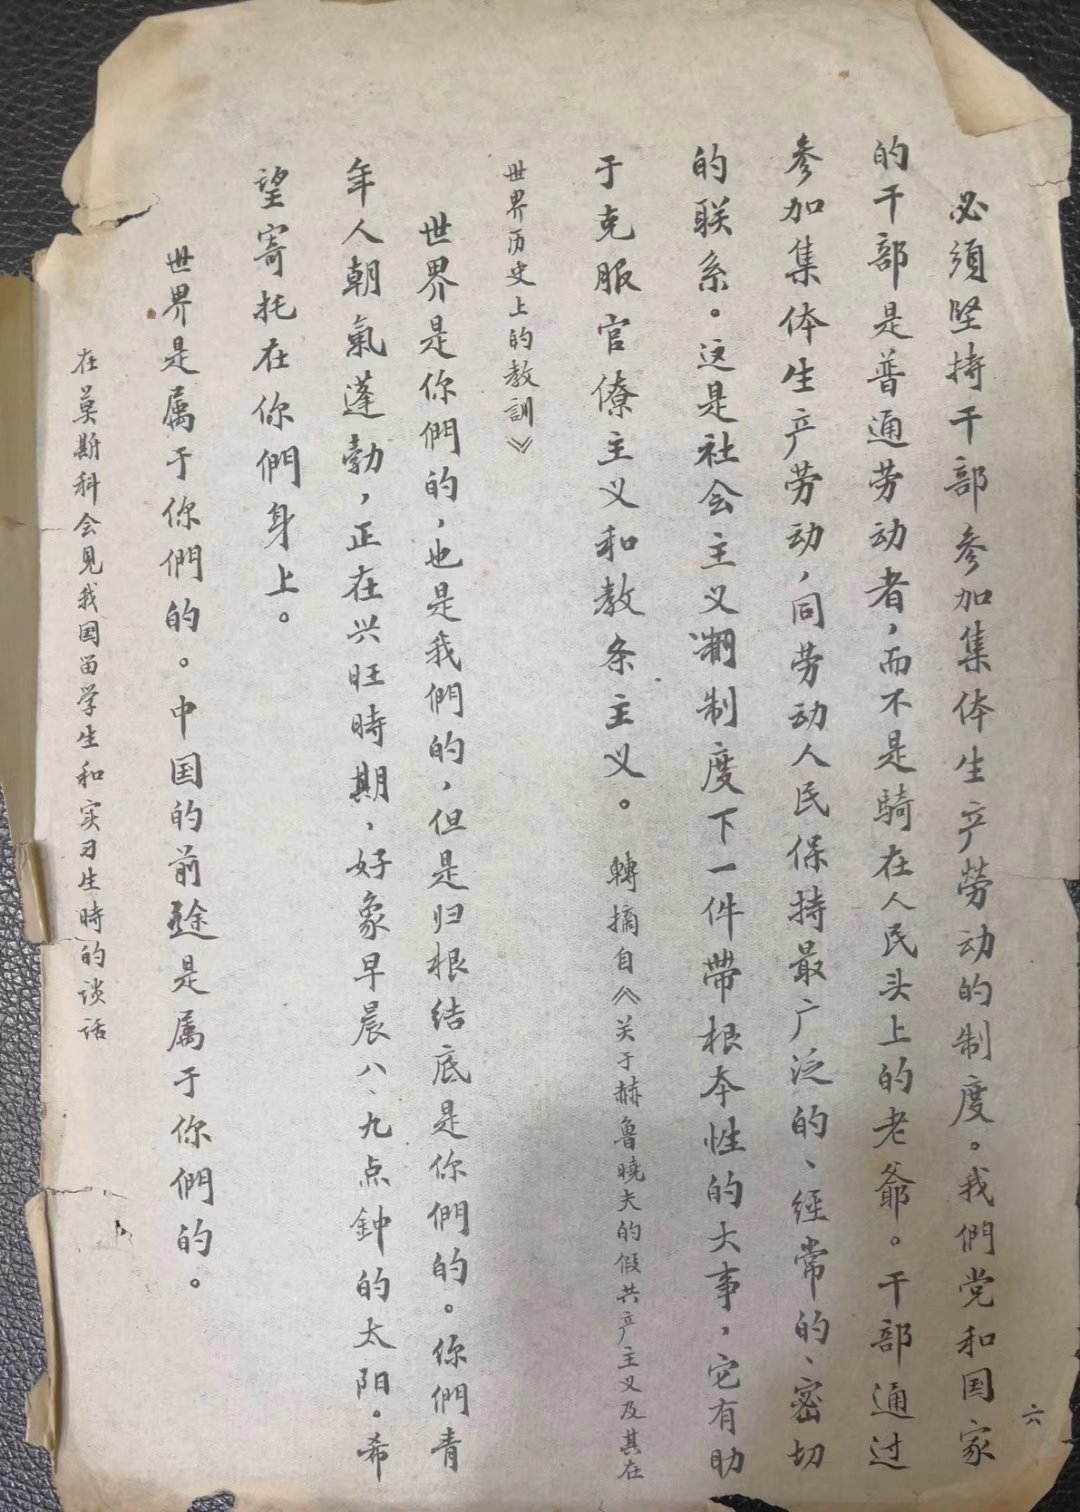 必須坚持干部参加集体生产劳动的制度。我們党和国家
的干部是普通劳动者，而不是騎在人民头上的老爺。干部通过
参加集体生产劳动，同劳动人民保持最广泛的、經常的、密切
的联系。这是社会主义制度下一件带根本性的大事，它有助
于克服官僚主义和教条主义。 轉摘自《关于赫鲁曉夫的假共产主义及其在
世界历史上的教訓》
世界是你們的，也是我們的，但是归根結底是你們的。你們青
年人朝氣蓬勃，正在兴旺時期，好象早晨八、九点鈡的太阳。希
望寄托在你們身上。
世界是属于你們的。中国的前途是属于你們的。
在莫斯科会見我国畄学生和实习生時的谈话
六